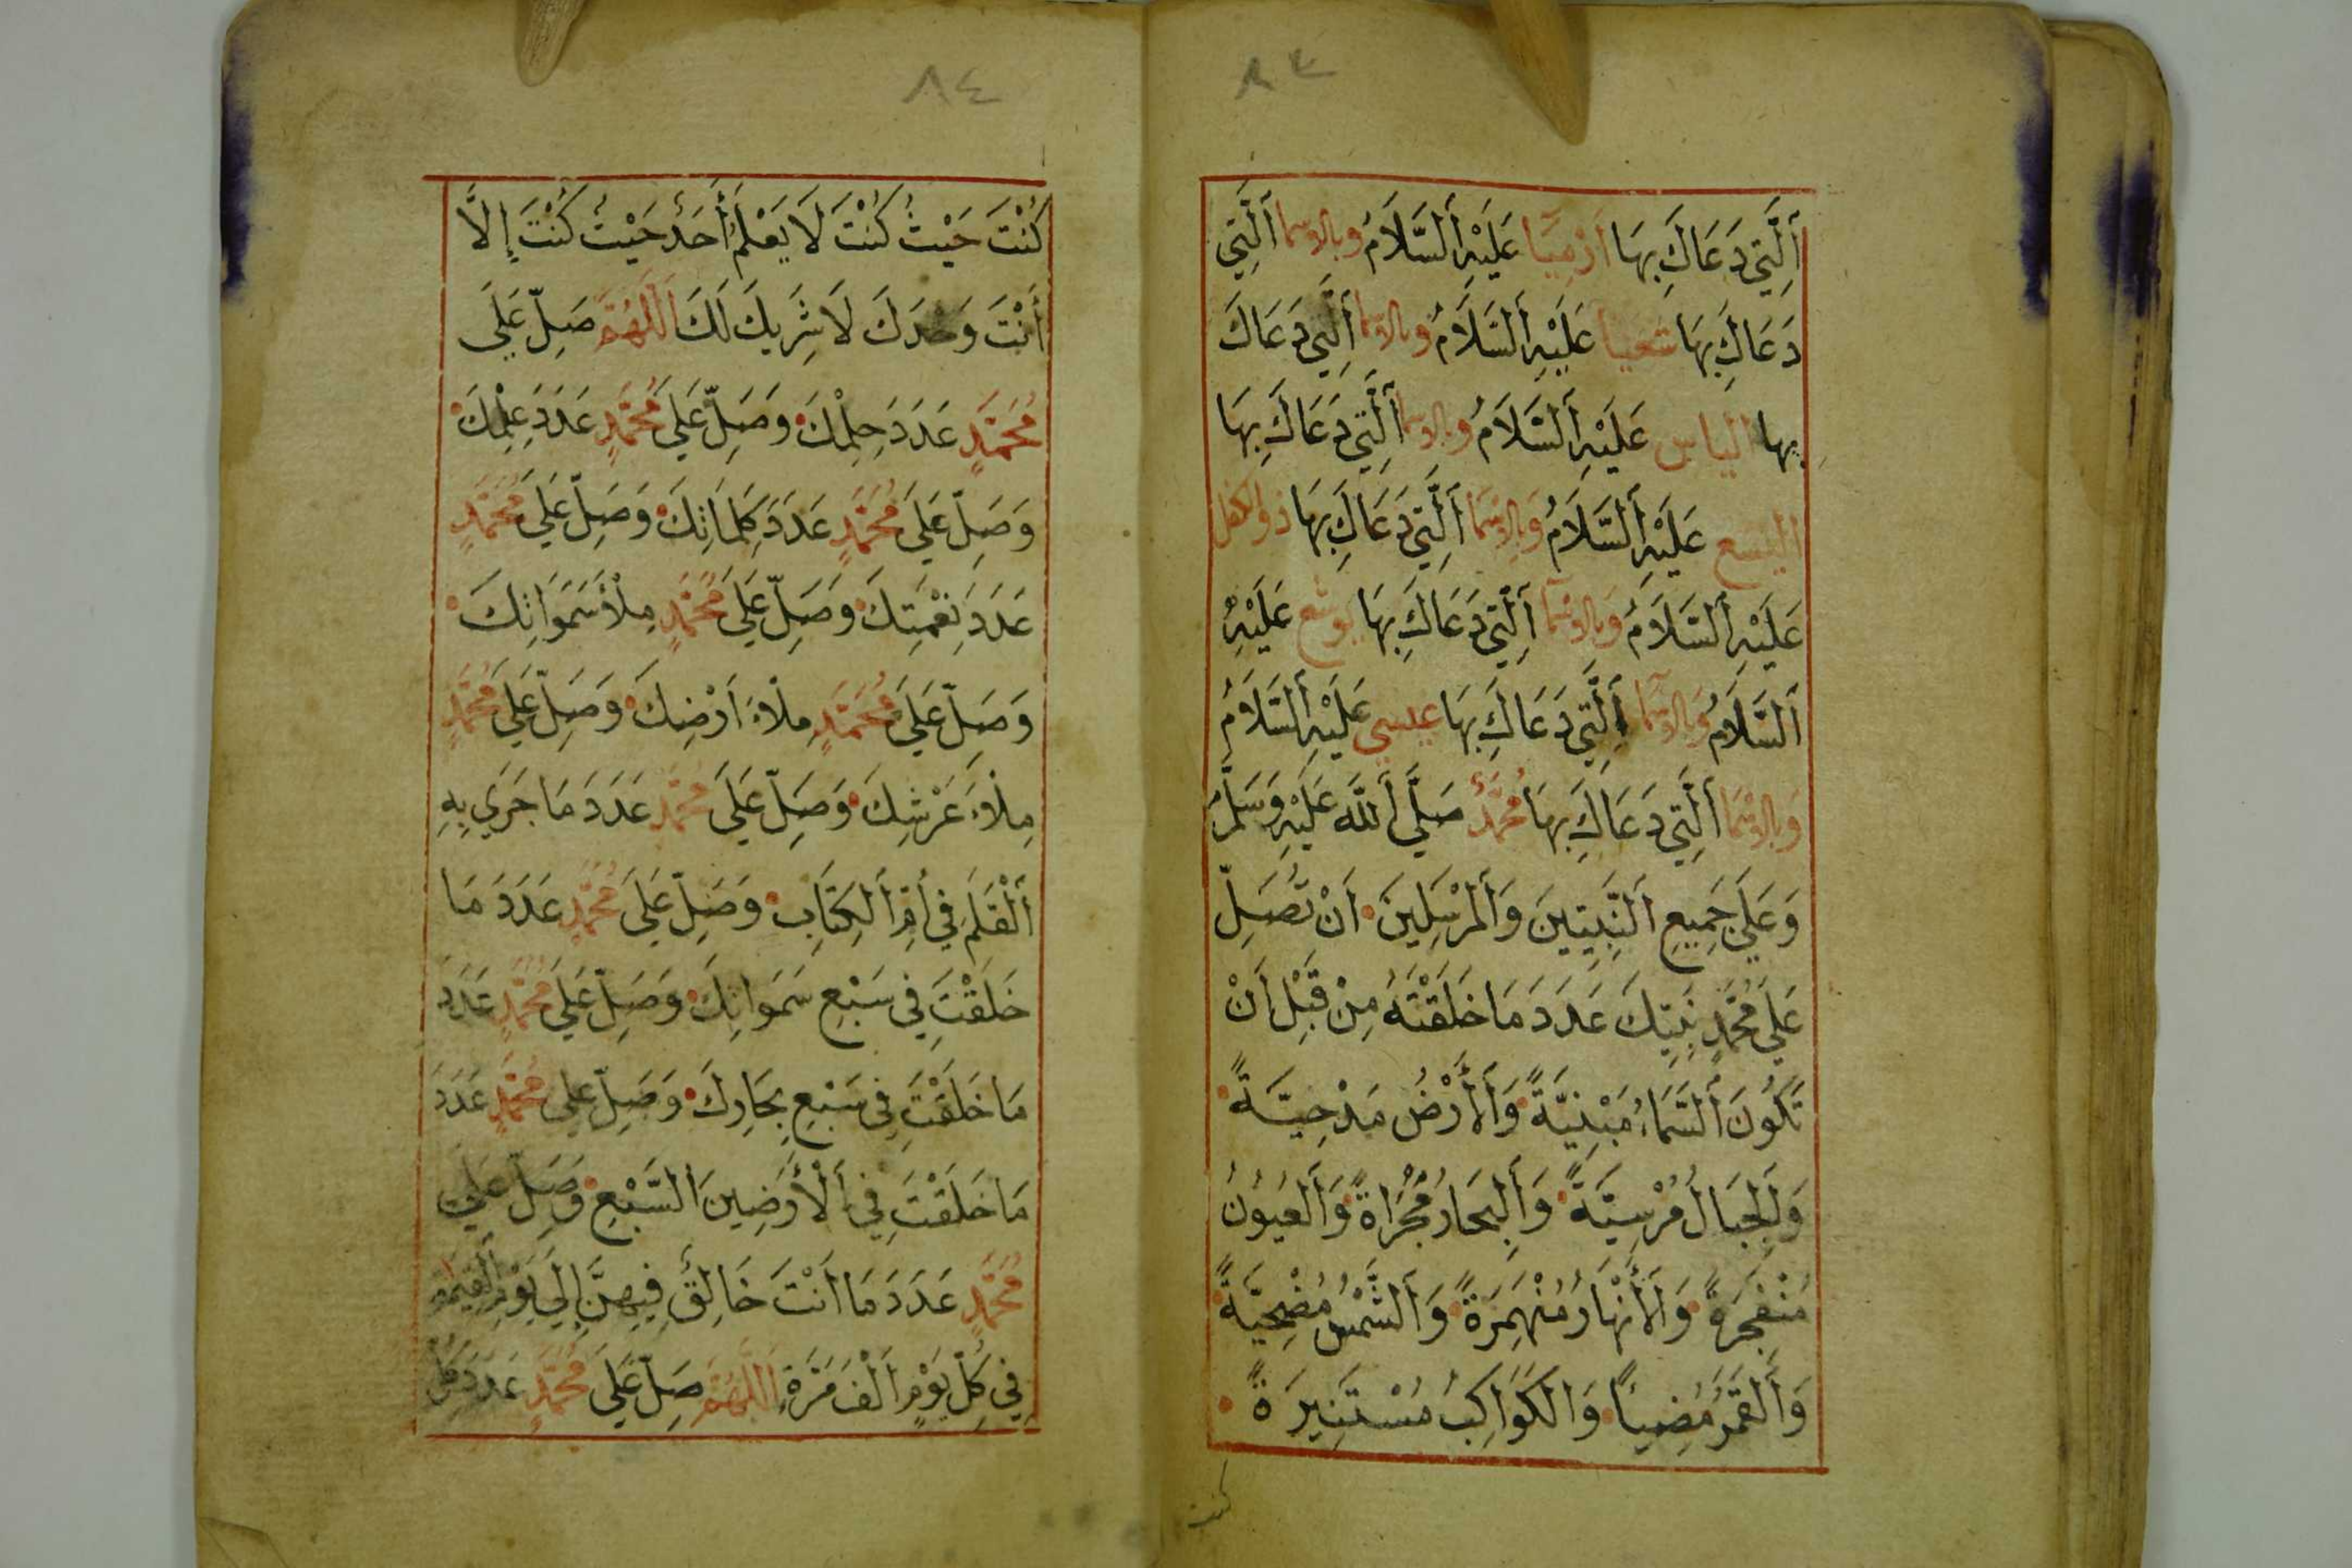 ٨٣
اَلَّتِي دَعَاكَ بِهَا اَرْمِيَا عَلَيْهِ اَلسَّلَامُ وبالاسما اَلَّتِي
دَعَاكَ بِهَا شعيا عَلَيْهِ اَلسَّلَامُ وبالاسما اَلَّتِي دَعَاكَ
بها الياس عَلَيْهِ اَلسَّلَامُ وبالاسما اَلَّتِي دَعَاكَ بِهَا
اليسع عَلَيْهِ اَلسَّلَامُ وَبِالاسْمَا اَلَّتِي دَعَاكَ بِهَا ذوالكفل
عَلَيْهِ اَلسَّلَامُ وَبالاسْمآ اَلَّتِي دَعَاكَ بِهَا يوشع عَلَيْهِ
اَلسَّلَامُ وَبالاسمآ اَلَّتِي دَعَاكَ بِهَا عيسي عَلَيْهِ اَلسَّلَامُ
وَبالاسْمَا اَلَّتِي دَعَاكَ بِهَا مُحَمَّدٌ صَلَّي اَللَّه عَلَيْهِ وَسَلَّمَ
وَعَلَي جَمِيعِ اَلنَّبِيِّينَ وَاَلمُرْسَلِينَ اَنْ تُصَلِّ
عَلَي مُحَمَّدٍ نَبِيِّكَ عَدَدَ مَا خَلَقْتَهُ مِنْ قَبْلِ اَنْ
تَكُونَ اَلسَّمَاءُ مَبْنِيَّةً وَاَلاَرْضُ مَدْحِيَّةً
وَاَلجِبَالُ مُرْسِيَّةً وَاَلبِحَارُ مُجْرَاةً وَاَلعُيُونُ
مُنْفَجِرَةً وَاَلأَنْهَارُ مُنْهَمِرَةً وَاَلشَّمْسُ مُضْحِيَّةً
وَاَلقَمَرُ مُضِيئاً وَالكَوَاكِبُ مُسْتَنِيرَةً
كنت
٨٤
كُنْتَ حَيْثُ كُنْتَ لاَ يَعْلَمُ أَحَدٌ حَيْثُ كُنْتَ إِلاَّ
أَنْتَ وَحْدَكَ لَا شَرِيكَ لَكَ اَللَّهُمَّ صَلِّ عَلَي
مُحَمَّدٍ عَدَدَ حِلْمِكَ وَصَلِّ عَلَي مُحَمَّدٍ عَدَدَ عِلْمِكَ
وَصَلِّ عَلَي مُحَمَّدٍ عَدَدَ كَلِمَاتِكَ وَصَلِّ عَلَي مُحَمَّدٍ
عَدَدَ نِعْمَتِكَ وَصَلِّ عَلَي مُحَمَّدٍ مِلْأَ سَمَوَاتِكَ
وَصَلِّ عَلَي مُحَمَّدٍ مِلْاءَ اَرْضِكَ وَصَلِّ عَلَي مُحَمَّدٍ
مِلْاءَ عَرْشِكَ وَصَلِّ عَلَي مُحَمَّدٍ عَدَدَ مَا جَرَي بِهِ
اَلْقَلَمُ فِي اُمِّ اَلكِتَابِ وَصَلِّ عَلَي مُحَمَّدٍ عَدَدَ مَا
خَلَقْتَ فِي سَبْعِ سَمَوَاتِكَ وَصَلِّ عَلَي مُحَمَّدٍ عَدَدَ
مَا خَلَقْتَ فِي سَبْعِ بِحَارِكَ وَصَلِّ عَلَي مُحَمَّدٍ عَدَدَ
مَا خَلَقْتَ فِي اَلْأَرَضِينَ اَلسَّبْعِ وَصَلِّ عَلَي
مُحَمَّدٍ عَدَدَ مَا اَنْتَ خَالِقٌ فِيهِنَّ إِلَي يَوْمِ اَلقِيٰمَةِ
فِي كُلِّ يَوْمٍ اَلْفَ مَرَّةٍ اَللَّهُمَّ صَلِّ عَلَي مُحَمَّدٍ عَدَدَ كُلِّ